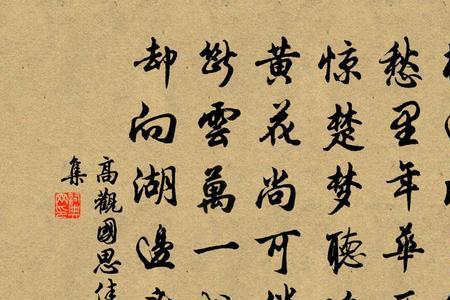 愁里年華
惊楚梦聽
黄花尚可
断雲萬一
却向湖邊
高觀國思佳
集